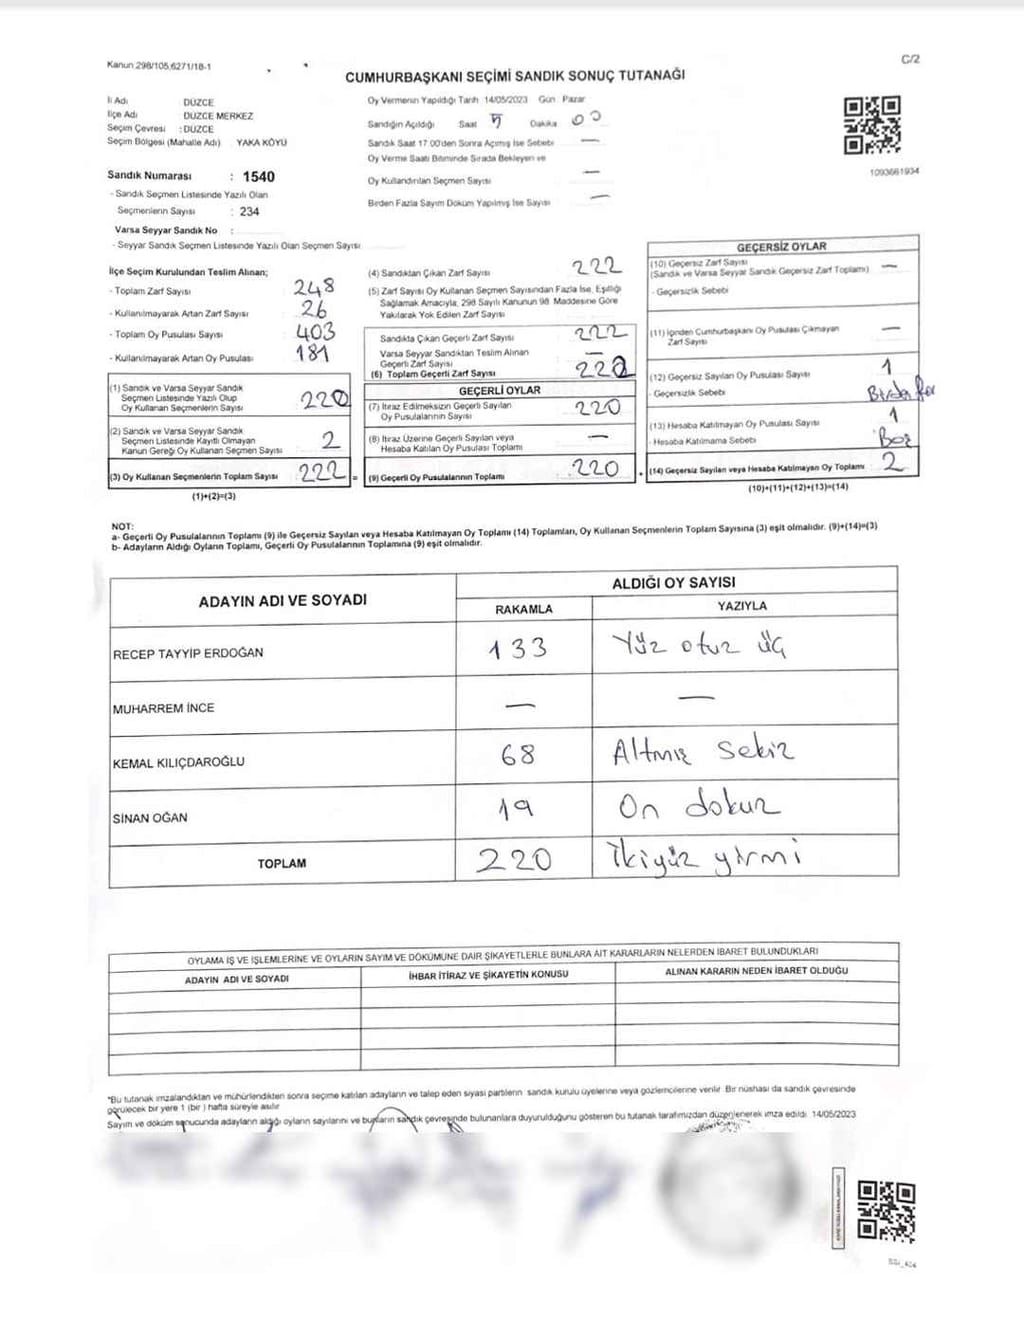 Kanun 298/105,6271/18-1
C/2
CUMHURBAŞKANI SEÇİMİ SANDIK SONUÇ TUTANAĞI
İl Adı DÜZCE
İlçe Adı DÜZCE MERKEZ
Seçim Çevresi : DÜZCE
Seçim Bölgesi (Mahalle Adı) YAKA KÖYÜ
Sandık Numarası : 1540
- Sandık Seçmen Listesinde Yazılı Olan
Seçmenlerin Sayısı : 234
Varsa Seyyar Sandık No :
- Seyyar Sandık Seçmen Listesinde Yazılı Olan Seçmen Sayısı
Oy Vermenin Yapıldığı Tarih 14/05/2023 Gün Pazar
Sandığın Açıldığı Saat Dakika 00
Sandık Saat 17.00'den Sonra Açılmış İse Sebebi —
Oy Verme Saati Bitiminde Sırada Bekleyen ve
Oy Kullandırılan Seçmen Sayısı —
Birden Fazla Sayım Döküm Yapılmış İse Sayısı —
1093661934
İlçe Seçim Kurulundan Teslim Alınan;
- Toplam Zarf Sayısı 248
- Kullanılmayarak Artan Zarf Sayısı 26
- Toplam Oy Pusulası Sayısı 403
- Kullanılmayarak Artan Oy Pusulası 181
(1) Sandık ve Varsa Seyyar Sandık
Seçmen Listesinde Yazılı Olup
Oy Kullanan Seçmenlerin Sayısı 220
(2) Sandık ve Varsa Seyyar Sandık
Seçmen Listesinde Kayıtlı Olmayan
Kanun Gereği Oy Kullanan Seçmen Sayısı 2
(3) Oy Kullanan Seçmenlerin Toplam Sayısı 222 =
(1)+(2)=(3)
(4) Sandıktan Çıkan Zarf Sayısı 222
(5) Zarf Sayısı Oy Kullanan Seçmen Sayısından Fazla İse, Eşitliği
Sağlamak Amacıyla, 298 Sayılı Kanunun 98 Maddesine Göre
Yakılarak Yok Edilen Zarf Sayısı
Sandıkta Çıkan Geçerli Zarf Sayısı 222
Varsa Seyyar Sandıktan Teslim Alınan
Geçerli Zarf Sayısı —
(6) Toplam Geçerli Zarf Sayısı 222
GEÇERLİ OYLAR
(7) İtiraz Edilmeksizin Geçerli Sayılan
Oy Pusulalarının Sayısı 220
(8) İtiraz Üzerine Geçerli Sayılan veya
Hesaba Katılan Oy Pusulası Toplamı —
(9) Geçerli Oy Pusulalarının Toplamı 220 +
GEÇERSİZ OYLAR
(10) Geçersiz Zarf Sayısı —
(Sandık ve Varsa Seyyar Sandık Geçersiz Zarf Toplamı)
- Geçersizlik Sebebi
(11) İçinden Cumhurbaşkanı Oy Pusulası Çıkmayan
Zarf Sayısı —
(12) Geçersiz Sayılan Oy Pusulası Sayısı 1
- Geçersizlik Sebebi
(13) Hesaba Katılmayan Oy Pusulası Sayısı 1
- Hesaba Katılmama Sebebi Boş
(14) Geçersiz Sayılan veya Hesaba Katılmayan Oy Toplamı 2
(10)+(11)+(12)+(13)=(14)
NOT:
a- Geçerli Oy Pusulalarının Toplamı (9) ile Geçersiz Sayılan veya Hesaba Katılmayan Oy Toplamı (14) Toplamları, Oy Kullanan Seçmenlerin Toplam Sayısına (3) eşit olmalıdır. (9)+(14)=(3)
b- Adayların Aldığı Oyların Toplamı, Geçerli Oy Pusulalarının Toplamına (9) eşit olmalıdır.
ADAYIN ADI VE SOYADI
ALDIĞI OY SAYISI
RAKAMLA YAZIYLA
RECEP TAYYİP ERDOĞAN 133 Yüz otuz üç
MUHARREM İNCE — —
KEMAL KILIÇDAROĞLU 68 Altmış Sekiz
SİNAN OĞAN 19 On dokuz
TOPLAM 220 İkiyüz yirmi
OYLAMA İŞ VE İŞLEMLERİNE VE OYLARIN SAYIM VE DÖKÜMÜNE DAİR ŞİKAYETLERLE BUNLARA AİT KARARLARIN NELERDEN İBARET BULUNDUKLARI
ADAYIN ADI VE SOYADI İHBAR İTİRAZ VE ŞİKAYETİN KONUSU ALINAN KARARIN NEDEN İBARET OLDUĞU
*Bu tutanak imzalandıktan ve mühürlendikten sonra seçime katılan adayların ve talep eden siyasi partilerin sandık kurulu üyelerine veya gözlemcilerine verilir. Bir nüshası da sandık çevresinde
görülecek bir yere 1 (bir) hafta süreyle asılır
Sayım ve döküm sonucunda adayların aldığı oyların sayılarını ve bunların sandık çevresinde bulunanlara duyurulduğunu gösteren bu tutanak tarafımızdan düzenlenerek imza edildi. 14/05/2023